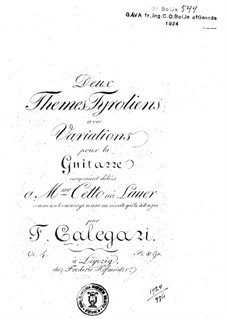 Boije 544
GÅVA fr. ing. C. O. Boije af Gennäs
1924
Deux
Themes Tyroliens
avec
Variations
pour la
Guitarre
composées et dediées
a Mme Cetto née Lauer
par
F. Calegari.
Oe. 4. Pr. 8 Gr.
à Leipzig,
chez Frederic Hofmeister.
1924